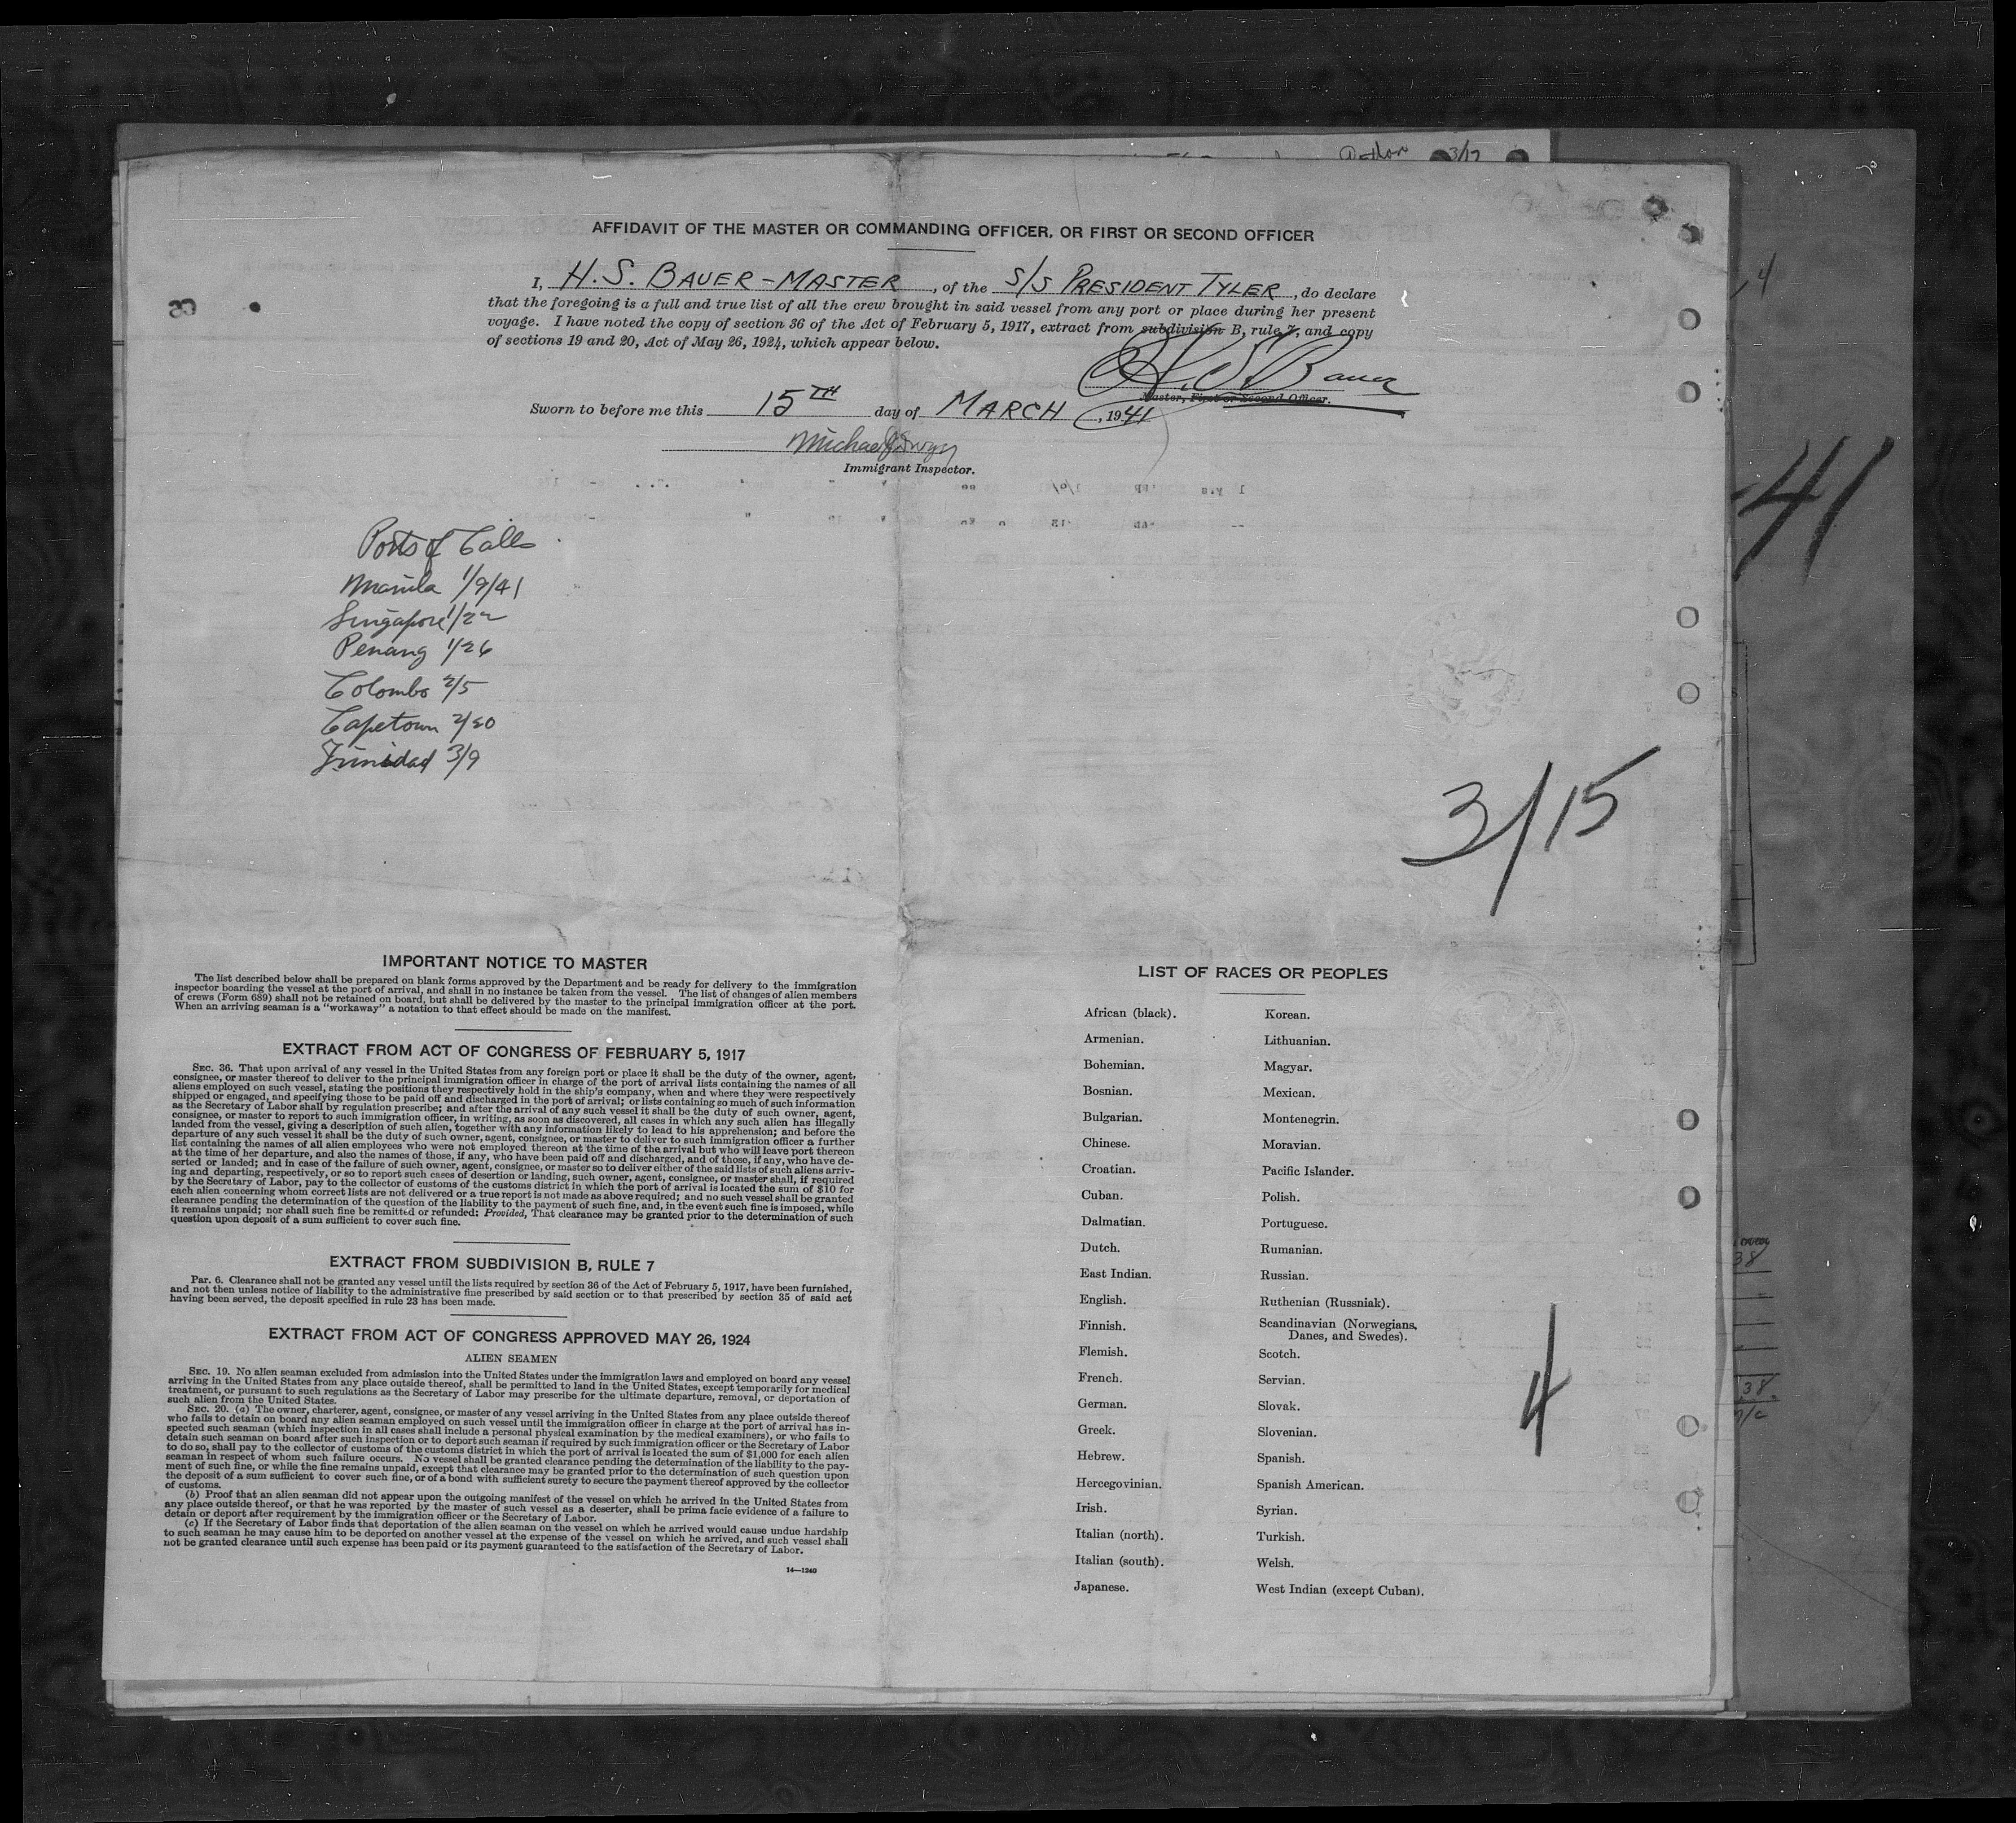 3/17
AFFIDAVIT OF THE MASTER OR COMMANDING OFFICER, OR FIRST OR SECOND OFFICER
I, H.S. BAUER - MASTER, of the S/S PRESIDENT TYLER, do declare
that the foregoing is a full and true list of all the crew brought in said vessel from any port or place during her present
voyage. I have noted the copy of section 36 of the Act of February 5, 1917, extract from subdivision B, rule 7, and copy
of sections 19 and 20, Act of May 26, 1924, which appear below.
H. S. Bauer
Master, First or Second Officer.
Sworn to before me this 15TH day of MARCH, 1941
Michael
Immigrant Inspector.
Ports of Calls
Manila 1/9/41
Singapore 1/22
Penang 1/26
Colombo 2/5
Capetown 2/20
Trinidad 3/9
41
3/15
IMPORTANT NOTICE TO MASTER
The list described below shall be prepared on blank forms approved by the Department and be ready for delivery to the immigration
inspector boarding the vessel at the port of arrival, and shall in no instance be taken from the vessel. The list of changes of alien members
of crews (Form 689) shall not be retained on board, but shall be delivered by the master to the principal immigration officer at the port.
When an arriving seaman is a "workaway" a notation to that effect should be made on the manifest.
EXTRACT FROM ACT OF CONGRESS OF FEBRUARY 5, 1917
SEC. 36. That upon arrival of any vessel in the United States from any foreign port or place it shall be the duty of the owner, agent,
consignee, or master thereof to deliver to the principal immigration officer in charge of the port of arrival lists containing the names of all
aliens employed on such vessel, stating the positions they respectively hold in the ship's company, when and where they were respectively
shipped or engaged, and specifying those to be paid off and discharged in the port of arrival; or lists containing so much of such information
as the Secretary of Labor shall by regulation prescribe; and after the arrival of any such vessel it shall be the duty of such owner, agent,
consignee, or master to report to such immigration officer, in writing, as soon as discovered, all cases in which any such alien has illegally
landed from the vessel, giving a description of such alien, together with any information likely to lead to his apprehension; and before the
departure of any such vessel it shall be the duty of such owner, agent, consignee, or master to deliver to such immigration officer a further
list containing the names of all alien employees who were not employed thereon at the time of the arrival but who will leave port thereon
at the time of her departure, and also the names of those, if any, who have been paid off and discharged, and of those, if any, who have de-
serted or landed; and in case of the failure of such owner, agent, consignee, or master so to deliver either of the said lists of such aliens arriv-
ing and departing, respectively, or so to report such cases of desertion or landing, such owner, agent, consignee, or master shall, if required
by the Secretary of Labor, pay to the collector of customs of the customs district in which the port of arrival is located the sum of $10 for
each alien concerning whom correct lists are not delivered or a true report is not made as above required; and no such vessel shall be granted
clearance pending the determination of the question of the liability to the payment of such fine, and, in the event such fine is imposed, while
it remains unpaid; nor shall such fine be remitted or refunded: Provided, That clearance may be granted prior to the determination of such
question upon deposit of a sum sufficient to cover such fine.
EXTRACT FROM SUBDIVISION B, RULE 7
Par. 6. Clearance shall not be granted any vessel until the lists required by section 36 of the Act of February 5, 1917, have been furnished,
and not then unless notice of liability to the administrative fine prescribed by said section or to that prescribed by section 35 of said act
having been served, the deposit specified in rule 23 has been made.
EXTRACT FROM ACT OF CONGRESS APPROVED MAY 26, 1924
ALIEN SEAMEN
SEC. 19. No alien seaman excluded from admission into the United States under the immigration laws and employed on board any vessel
arriving in the United States from any place outside thereof, shall be permitted to land in the United States, except temporarily for medical
treatment, or pursuant to such regulations as the Secretary of Labor may prescribe for the ultimate departure, removal, or deportation of
such alien from the United States.
SEC. 20. (a) The owner, charterer, agent, consignee, or master of any vessel arriving in the United States from any place outside thereof
who fails to detain on board any alien seaman employed on such vessel until the immigration officer in charge at the port of arrival has in-
spected such seaman (which inspection in all cases shall include a personal physical examination by the medical examiners), or who fails to
detain such seaman on board after such inspection or to deport such seaman if required by such immigration officer or the Secretary of Labor
to do so, shall pay to the collector of customs of the customs district in which the port of arrival is located the sum of $1,000 for each alien
seaman in respect of whom such failure occurs. No vessel shall be granted clearance pending the determination of the liability to the pay-
ment of such fine, or while the fine remains unpaid, except that clearance may be granted prior to the determination of such question upon
the deposit of a sum sufficient to cover such fine, or of a bond with sufficient surety to secure the payment thereof approved by the collector
of customs.
(b) Proof that an alien seaman did not appear upon the outgoing manifest of the vessel on which he arrived in the United States from
any place outside thereof, or that he was reported by the master of such vessel as a deserter, shall be prima facie evidence of a failure to
detain or deport after requirement by the immigration officer or the Secretary of Labor.
(c) If the Secretary of Labor finds that deportation of the alien seaman on the vessel on which he arrived would cause undue hardship
to such seaman he may cause him to be deported on another vessel at the expense of the vessel on which he arrived, and such vessel shall
not be granted clearance until such expense has been paid or its payment guaranteed to the satisfaction of the Secretary of Labor.
14—1240
LIST OF RACES OR PEOPLES
African (black). Korean.
Armenian. Lithuanian.
Bohemian. Magyar.
Bosnian. Mexican.
Bulgarian. Montenegrin.
Chinese. Moravian.
Croatian. Pacific Islander.
Cuban. Polish.
Dalmatian. Portuguese.
Dutch. Rumanian.
East Indian. Russian.
English. Ruthenian (Russniak).
Finnish. Scandinavian (Norwegians,
Danes, and Swedes).
Flemish. Scotch.
French. Servian.
German. Slovak.
Greek. Slovenian.
Hebrew. Spanish.
Hercegovinian. Spanish American.
Irish. Syrian.
Italian (north). Turkish.
Italian (south). Welsh.
Japanese. West Indian (except Cuban).
4
38
38.